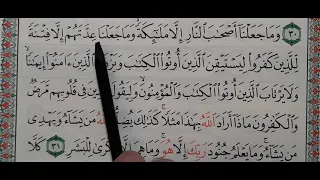 ٣٠ وَمَا جَعَلْنَآ أَصْحَٰبَ ٱلنَّارِ إِلَّا مَلَٰٓئِكَةً وَمَا جَعَلْنَا عِدَّتَهُمْ إِلَّا فِتْنَةً
لِّلَّذِينَ كَفَرُوا۟ لِيَسْتَيْقِنَ ٱلَّذِينَ أُوتُوا۟ ٱلْكِتَٰبَ وَيَزْدَادَ ٱلَّذِينَ ءَامَنُوٓا۟ إِيمَٰنًا
وَلَا يَرْتَابَ ٱلَّذِينَ أُوتُوا۟ ٱلْكِتَٰبَ وَٱلْمُؤْمِنُونَ وَلِيَقُولَ ٱلَّذِينَ فِى قُلُوبِهِم مَّرَضٌ
وَٱلْكَٰفِرُونَ مَاذَآ أَرَادَ ٱللَّهُ بِهَٰذَا مَثَلًا كَذَٰلِكَ يُضِلُّ ٱللَّهُ مَن يَشَآءُ وَيَهْدِى
مَن يَشَآءُ وَمَا يَعْلَمُ جُنُودَ رَبِّكَ إِلَّا هُوَ وَمَا هِىَ إِلَّا ذِكْرَىٰ لِلْبَشَرِ ٣١ كَلَّا